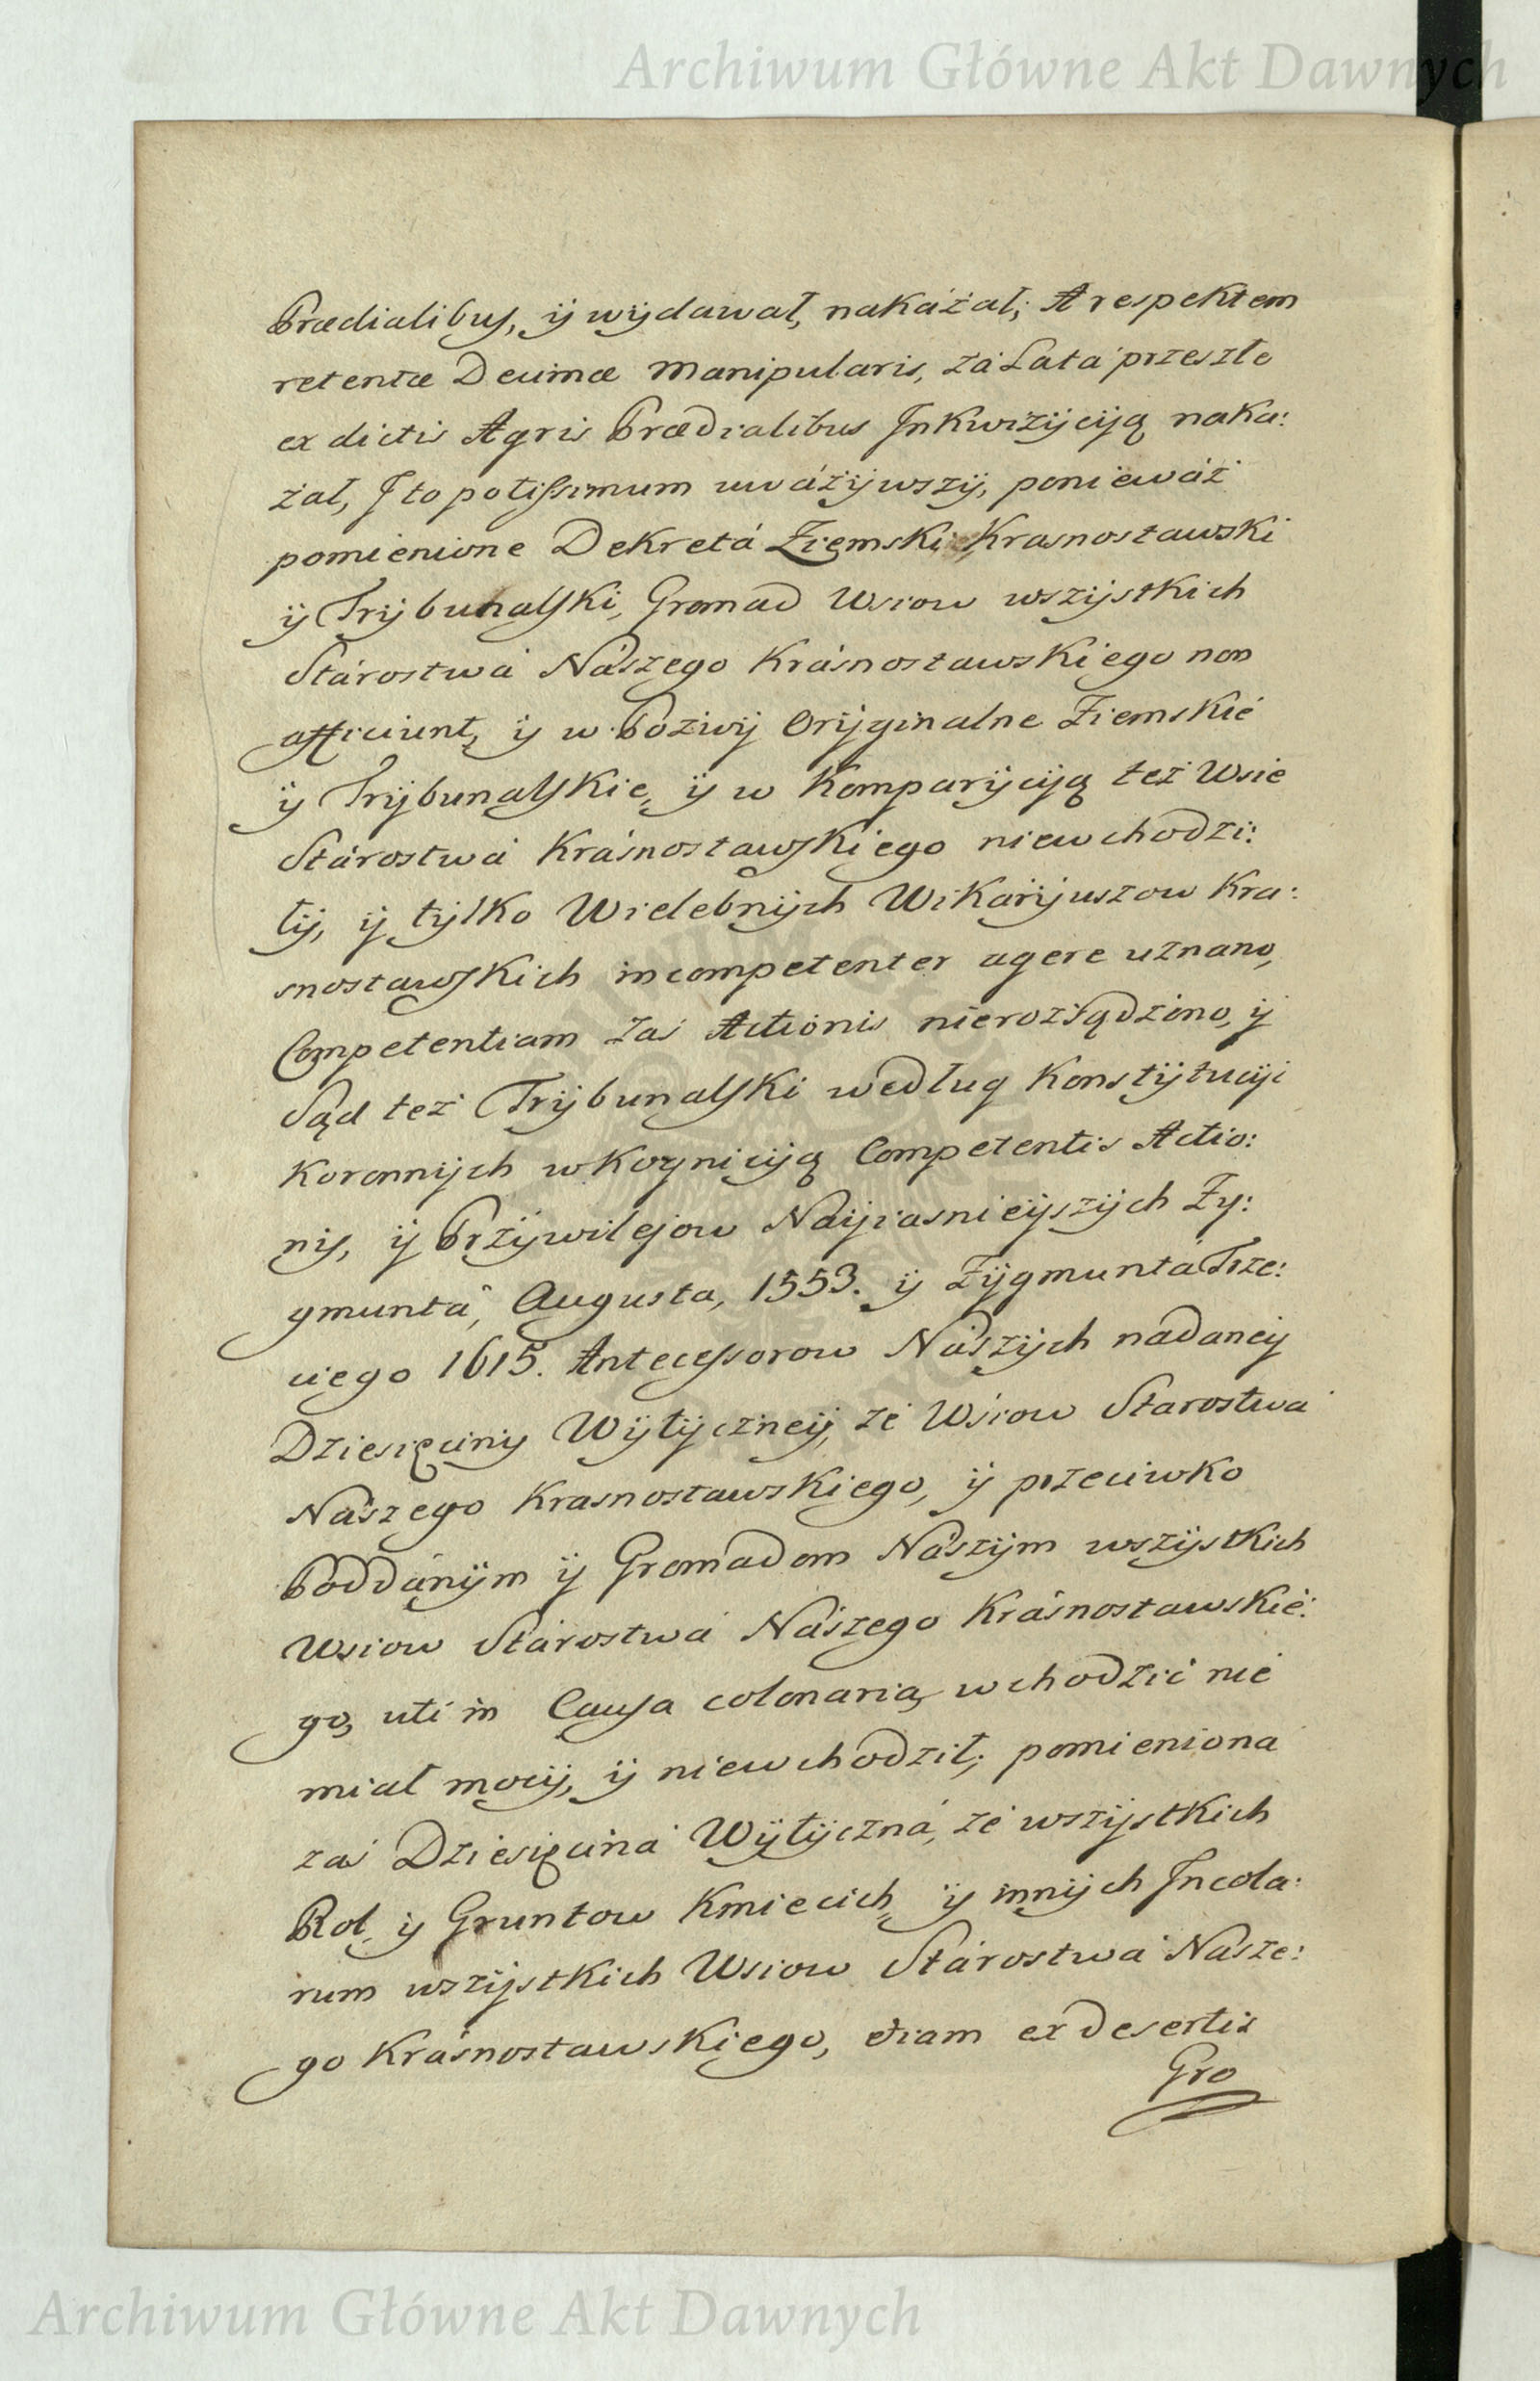 Archiwum Główne Akt Dawnych
Prædialibus, ÿ wÿdawał, nakázał; A respektem
retentæ Decimæ Manipularis, zá Latá przeszłe
ex dictis Agris Prædialibus Inkwizÿcÿą naka:
zał, I to potissimum uwáżÿwszÿ, poniewáż
pomienione Dekretá Ziemski Krasnostawski
ÿ Trÿbunalski, Gromad Wsiow wszÿstkich
Stárostwá Nászego Krásnostawskiego non
afficiunt, ÿ w Pozwÿ Orÿginalne Ziemskié
ÿ Trÿbunalskie, ÿ w Komparÿcÿą też Wsie
Stárostwá Krásnostawskiego niewchodzi:
łÿ, ÿ tÿlko Wielebnÿch Wikarÿuszow Kra:
snostawskich incompetenter agere uznano,
Competentiam zaś Actionis nierozsądzono, ÿ
Sąd też Trÿbunalski według Konstÿtucÿi
Koronnÿch w Kognicÿą Competentis Actio:
nis, ÿ Przÿwilejow Naÿiasnieÿszÿch Zÿ:
gmuntá, Augusta, 1553. ÿ Zÿgmuntá Trze:
ciego 1615. Antecessorow Nászÿch nadaneÿ
Dziesięcinÿ Wÿtÿczneÿ, zé Wsiow Starostwá
Nászego Krasnostawskiego, ÿ przeciwko
Poddánÿm ÿ Gromádom Nászÿm wszÿstkich
Wsiow Stárostwá Nászego Krásnostawskié:
go, uti in Causa colonaria, wchodzić nié
miał mocÿ, ÿ niewchodził; pomieniona
zaś Dziesięciná Wÿtÿczná, zé wszÿstkich
Rol, ÿ Gruntow Kmiecich, ÿ innÿch Incola:
rum wszÿstkich Wsiow Stárostwá Násze:
go Krásnostawskiego, etiam ex desertis
Gro
Archiwum Główne Akt Dawnych